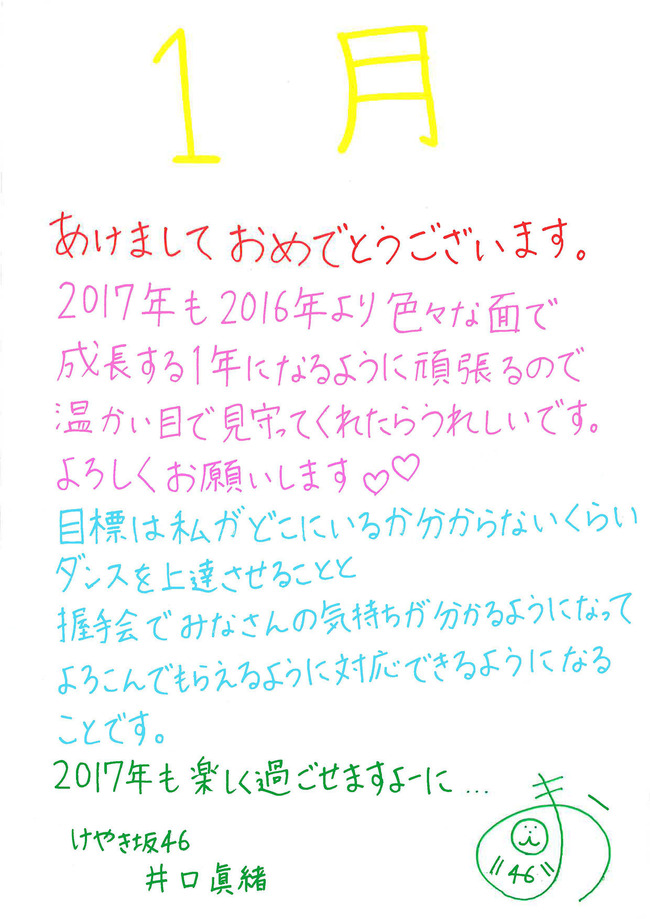 1月
あけましておめでとうございます。
2017年も2016年より色々な面で
成長する1年になるように頑張るので
温かい目で見守ってくれたらうれしいです。
よろしくお願いします♡♡
目標は私がどこにいるか分からないくらい
ダンスを上達させることと
握手会でみなさんの気持ちが分かるようになって
よろこんでもらえるように対応できるようになる
ことです。
2017年も楽しく過ごせますよーに...
けやき坂46
井口眞緒
ま
"46"